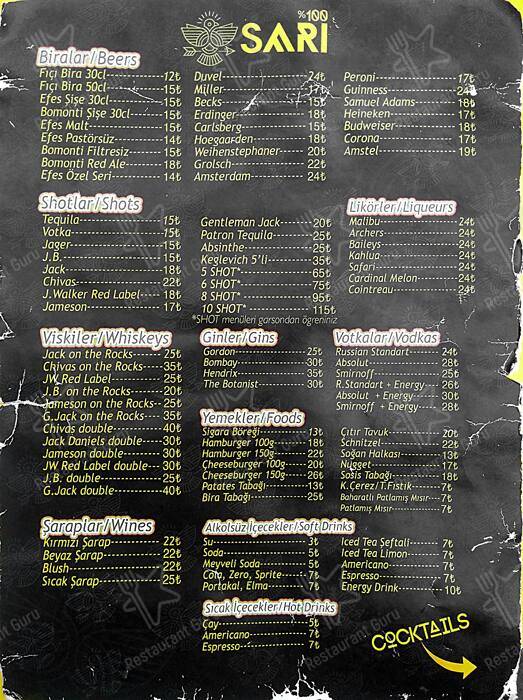 %100
SARI
Biralar/Beers
Fıçı Bira 30cl 12₺
Fıçı Bira 50cl 15₺
Efes Şişe 30cl 15₺
Bomonti Şişe 30cl 15₺
Efes Malt 15₺
Efes Pastörsüz 14₺
Bomonti Filtresiz 15₺
Bomonti Red Ale 18₺
Efes Özel Seri 14₺
Duvel 24₺
Miller 17₺
Becks 15₺
Erdinger 18₺
Carlsberg 15₺
Hoegaarden 18₺
Weihenstephaner 20₺
Grolsch 22₺
Amsterdam 24₺
Peroni 17₺
Guinness 24₺
Samuel Adams 18₺
Heineken 17₺
Budweiser 18₺
Corona 17₺
Amstel 19₺
Shotlar/Shots
Tequila 15₺
Votka 15₺
Jager 15₺
J.B. 15₺
Jack 18₺
Chivas 22₺
J.Walker Red Label 18₺
Jameson 17₺
Gentleman Jack 20₺
Patron Tequila 25₺
Absinthe 25₺
Keglevich 5'li 35₺
5 SHOT* 65₺
6 SHOT* 75₺
8 SHOT* 95₺
10 SHOT* 115₺
*SHOT menüleri garsondan öğreniniz
Likörler/Liqueurs
Malibu 24₺
Archers 24₺
Baileys 24₺
Kahlua 24₺
Safari 24₺
Cardinal Melon 24₺
Cointreau 24₺
Viskiler/Whiskeys
Jack on the Rocks 25₺
Chivas on the Rocks 35₺
JW Red Label 25₺
J.B. on the Rocks 20₺
Jameson on the Rocks 25₺
G.Jack on the Rocks 35₺
Chivas double 40₺
Jack Daniels double 30₺
Jameson double 30₺
JW Red Label double 30₺
J.B. double 25₺
G.Jack double 40₺
Ginler/Gins
Gordon 25₺
Bombay 30₺
Hendrix 35₺
The Botanist 30₺
Votkalar/Vodkas
Russian Standart 24₺
Absolut 28₺
Smirnoff 25₺
R.Standart + Energy 26₺
Absolut + Energy 30₺
Smirnoff + Energy 28₺
Yemekler/Foods
Sigara Böreği 13₺
Hamburger 100g 18₺
Hamburger 150g 22₺
Cheeseburger 100g 22₺
Cheeseburger 150g 26₺
Patates Tabağı 13₺
Bira Tabağı 25₺
Çıtır Tavuk 20₺
Schnitzel 22₺
Soğan Halkası 13₺
Nugget 17₺
Sosis Tabağı 18₺
K.Çerez/T.Fıstık 7₺
Baharatlı Patlamış Mısır 7₺
Patlamış Mısır 7₺
Şaraplar/Wines
Kırmızı Şarap 22₺
Beyaz Şarap 22₺
Blush 22₺
Sıcak Şarap 25₺
Alkolsüz İçecekler/Soft Drinks
Su 3₺
Soda 5₺
Meyveli Soda 5₺
Cola, Zero, Sprite 7₺
Portakal, Elma 7₺
Iced Tea Şeftali 7₺
Iced Tea Limon 7₺
Americano 7₺
Espresso 7₺
Energy Drink 10₺
Sıcak İçecekler/Hot Drinks
Çay 5₺
Americano 7₺
Espresso 7₺
COCKTAILS
Restaurant Guru